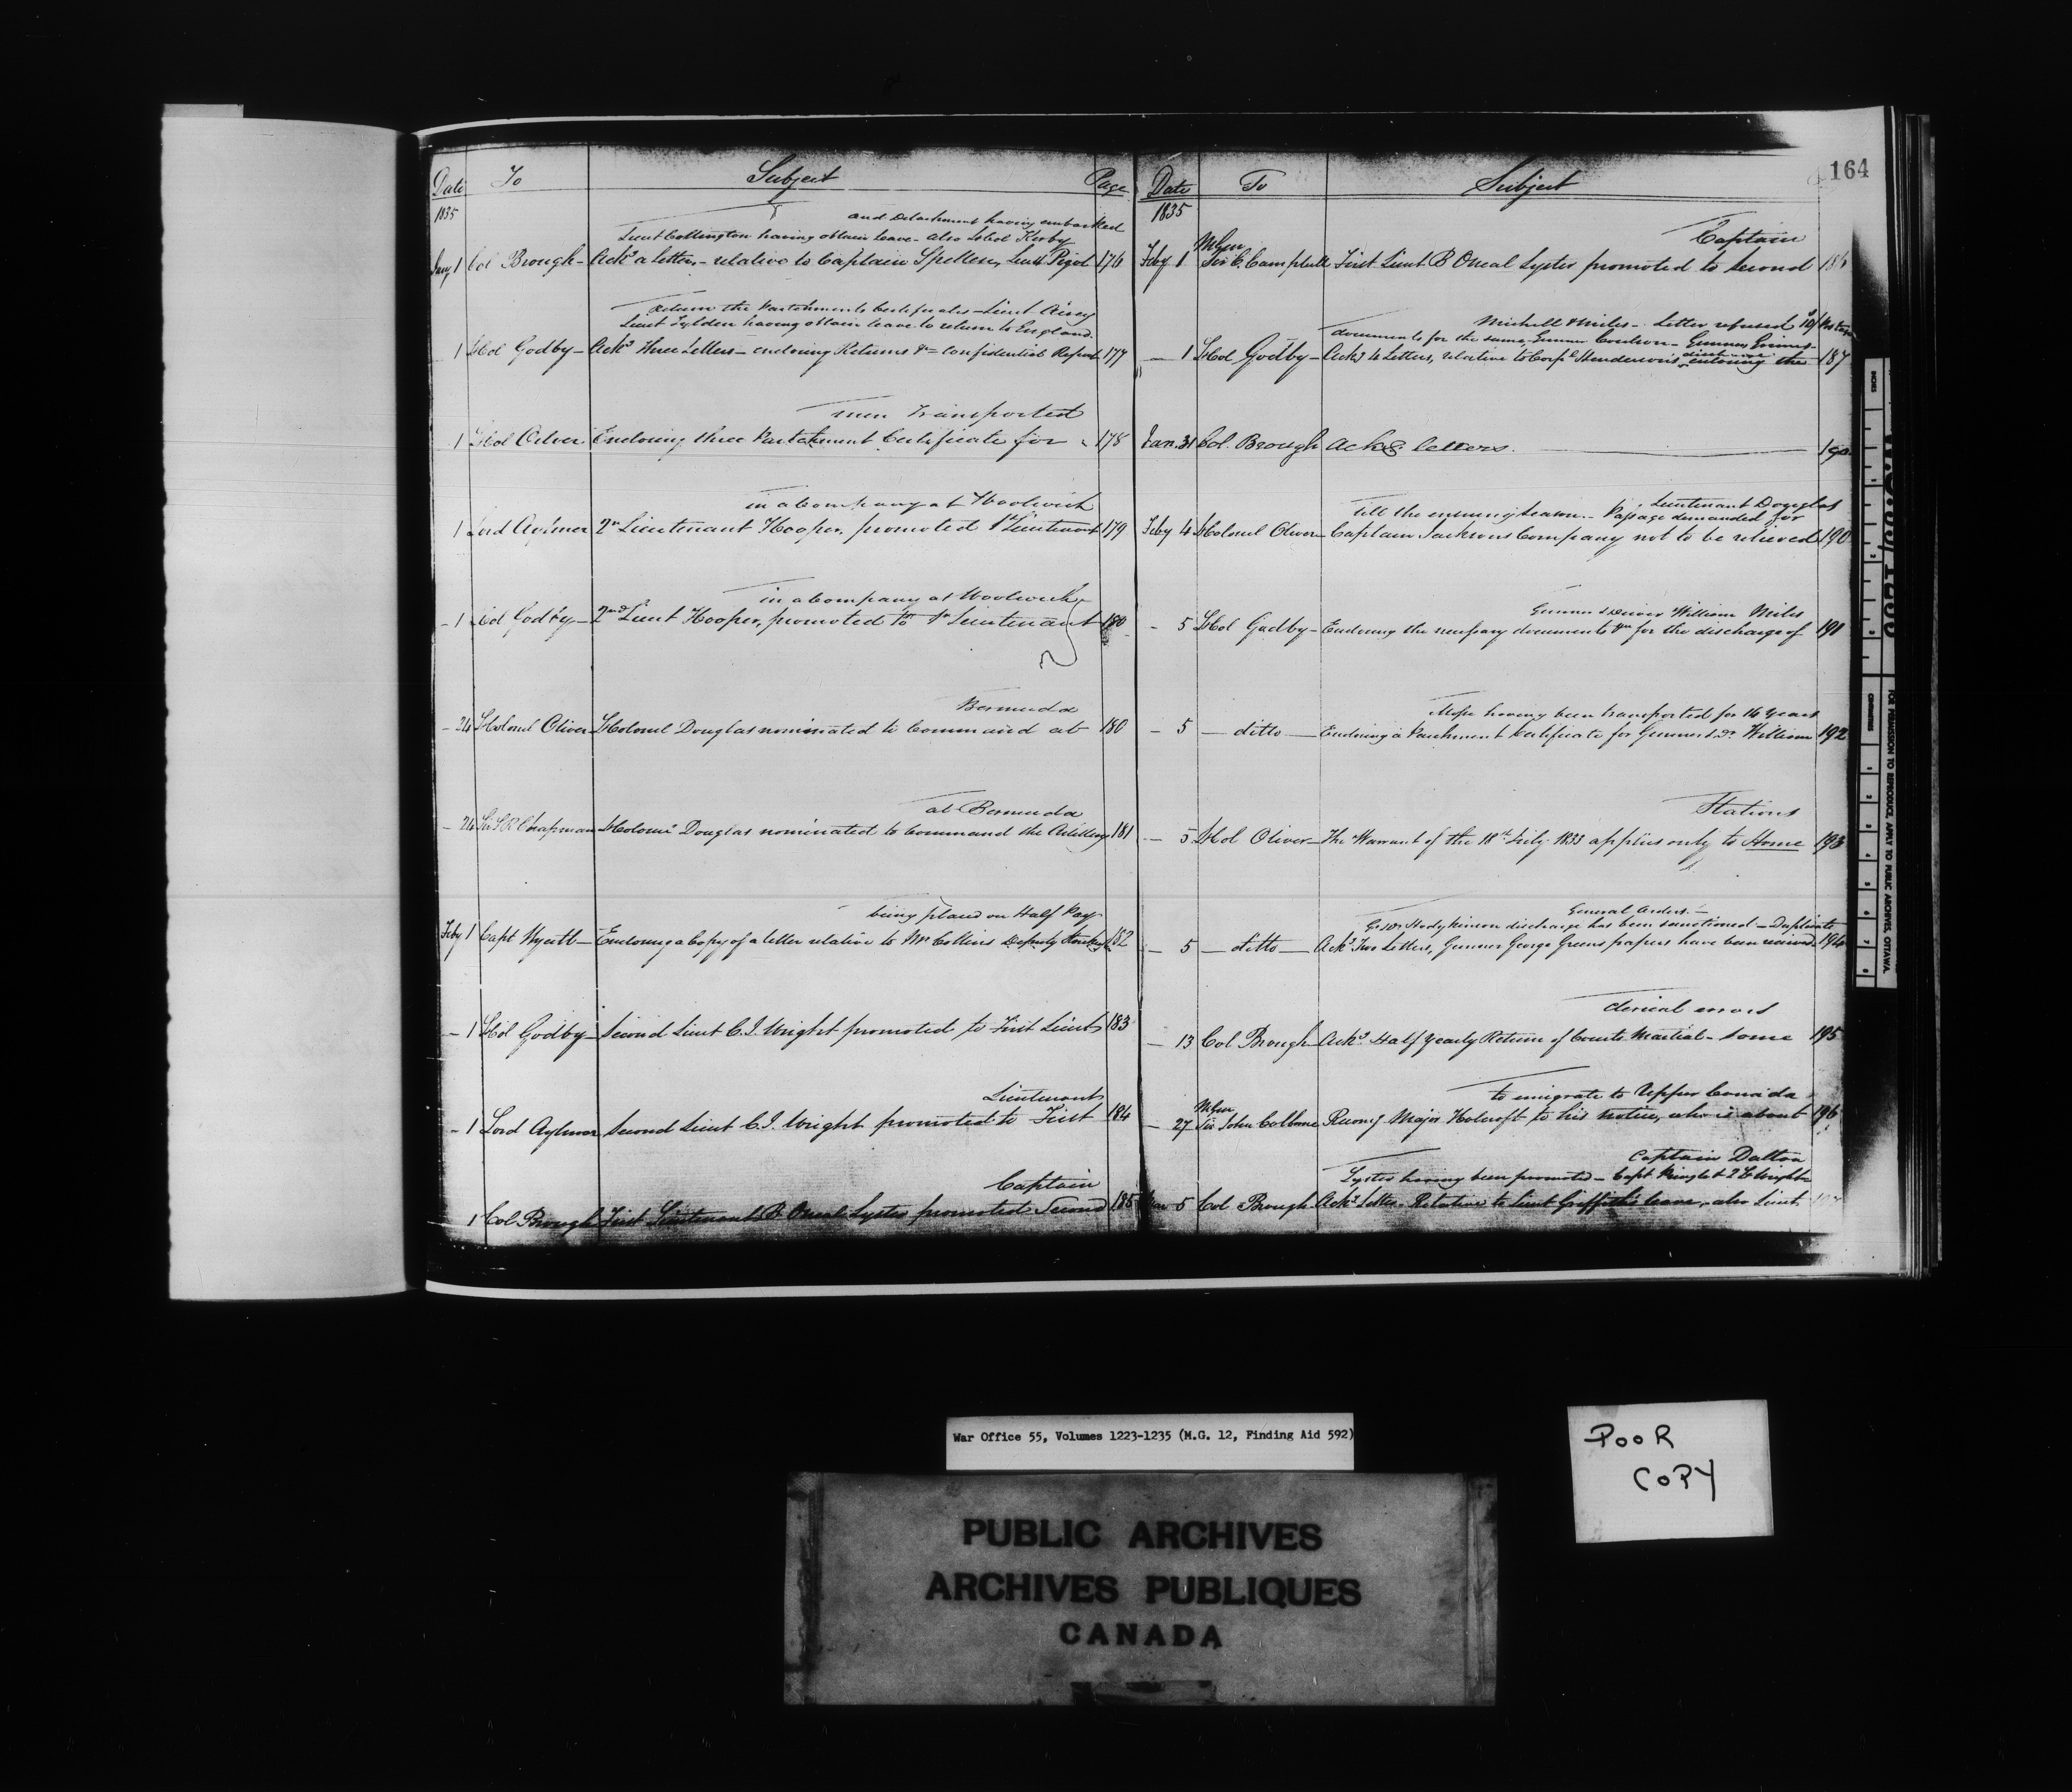 164
Date To Subject Page
1835
and Detachment having embarked
Lieut Collington having obtain leave - also LtCol Kerby
Jany 1 Col Brough - Ackg a Letter, - relative to Captain Spellen, Lieut Pigot 176
Return the Parchments Certificates - Lieut Airey
Lieut Tylden having obtain leave to return to England
1 LtCol Godby - Ackg Three Letters - enclosing Returns &c - confidential Report 177
men Transported
1 LtCol Oliver Enclosing three Parchment Certificate for 178
in a Company at Woolwich
1 Lord Aylmer 2nd Lieutenant Hooper, promoted 1st Lieutenant 179
in a Company at Woolwich
- 1 LtCol Godby - 2nd Lieut Hooper, promoted to 1st Lieutenant 180
Bermuda
- 24 LtColonel Oliver LtColonel Douglas nominated to Command at 180
at Bermuda
- 24 Sir S R Chapman LtColonel Douglas nominated to Command the Artillery 181
being placed on Half Pay
Feby 1 Capt Wyatt - Enclosing a Copy of a letter relative to Mr Collins Deputy Storekeepr 182
- 1 LtCol Godby - Second Lieut C. J. Wright promoted to First Lieut 183
Lieutenant
- 1 Lord Aylmer Second Lieut C. J. Wright promoted to First 184
Captain
1 Col Brough First Lieutenant B Oneal Lyster promoted Second 185
Date To Subject
1835
Captain
MGen
Feby 1 Sir C. Campbell First Lieut B Oneal Lyster promoted to second 186
Michell & Miles - Letter refused
documents for the same, Gunner Coulson - Gunner Grimes
- 1 LtCol Godby - Ackg 4 Letters, relative to Corpl Henderson's discharge enclosing the 187
Jan. 31 Col. Brough Ackg letters. 190
Lieutenant Douglas
till the ensuing Season - Passage demanded for
Feby 4 LtColonel Oliver - Captain Jacksons Company not to be relieved 190
Gunner & Driver William Miles
- 5 LtCol Godby - Enclosing the necessary documents &c for the discharge of 191
Mope having been transported for 14 Years
- 5 - ditto - Enclosing a Parchment Certificate for Gunner & Dr William 192
Stations
- 5 LtCol Oliver - The Warrant of the 18th July 1833 applies only to Home 193
General Orders -
G & Dr Hodgkinson discharge has been sanctioned - Duplicate
- 5 - ditto - Ackg Two Letters, Gunner George Greens papers have been received 194
clerical errors
- 13 Col Brough - Ackg Half Yearly Return of Courts Martial - some 195
to emigrate to Upper Canada
MGen
- 27 Sir John Colborne Recomg Major Holcroft to his notice, who is about 196
Captain Dalton
Lyster having been promoted - Capt Pringle & 2 Lt Wright
Mar 5 Col Brough Ackg Letter. Relative to Lieut Griffith's leave, also Lieut
INCHES
CENTIMETRES
FOR PERMISSION TO REPRODUCE, APPLY TO PUBLIC ARCHIVES, OTTAWA.
War Office 55, Volumes 1223-1235 (M.G. 12, Finding Aid 592)
POOR
COPY
PUBLIC ARCHIVES
ARCHIVES PUBLIQUES
CANADA